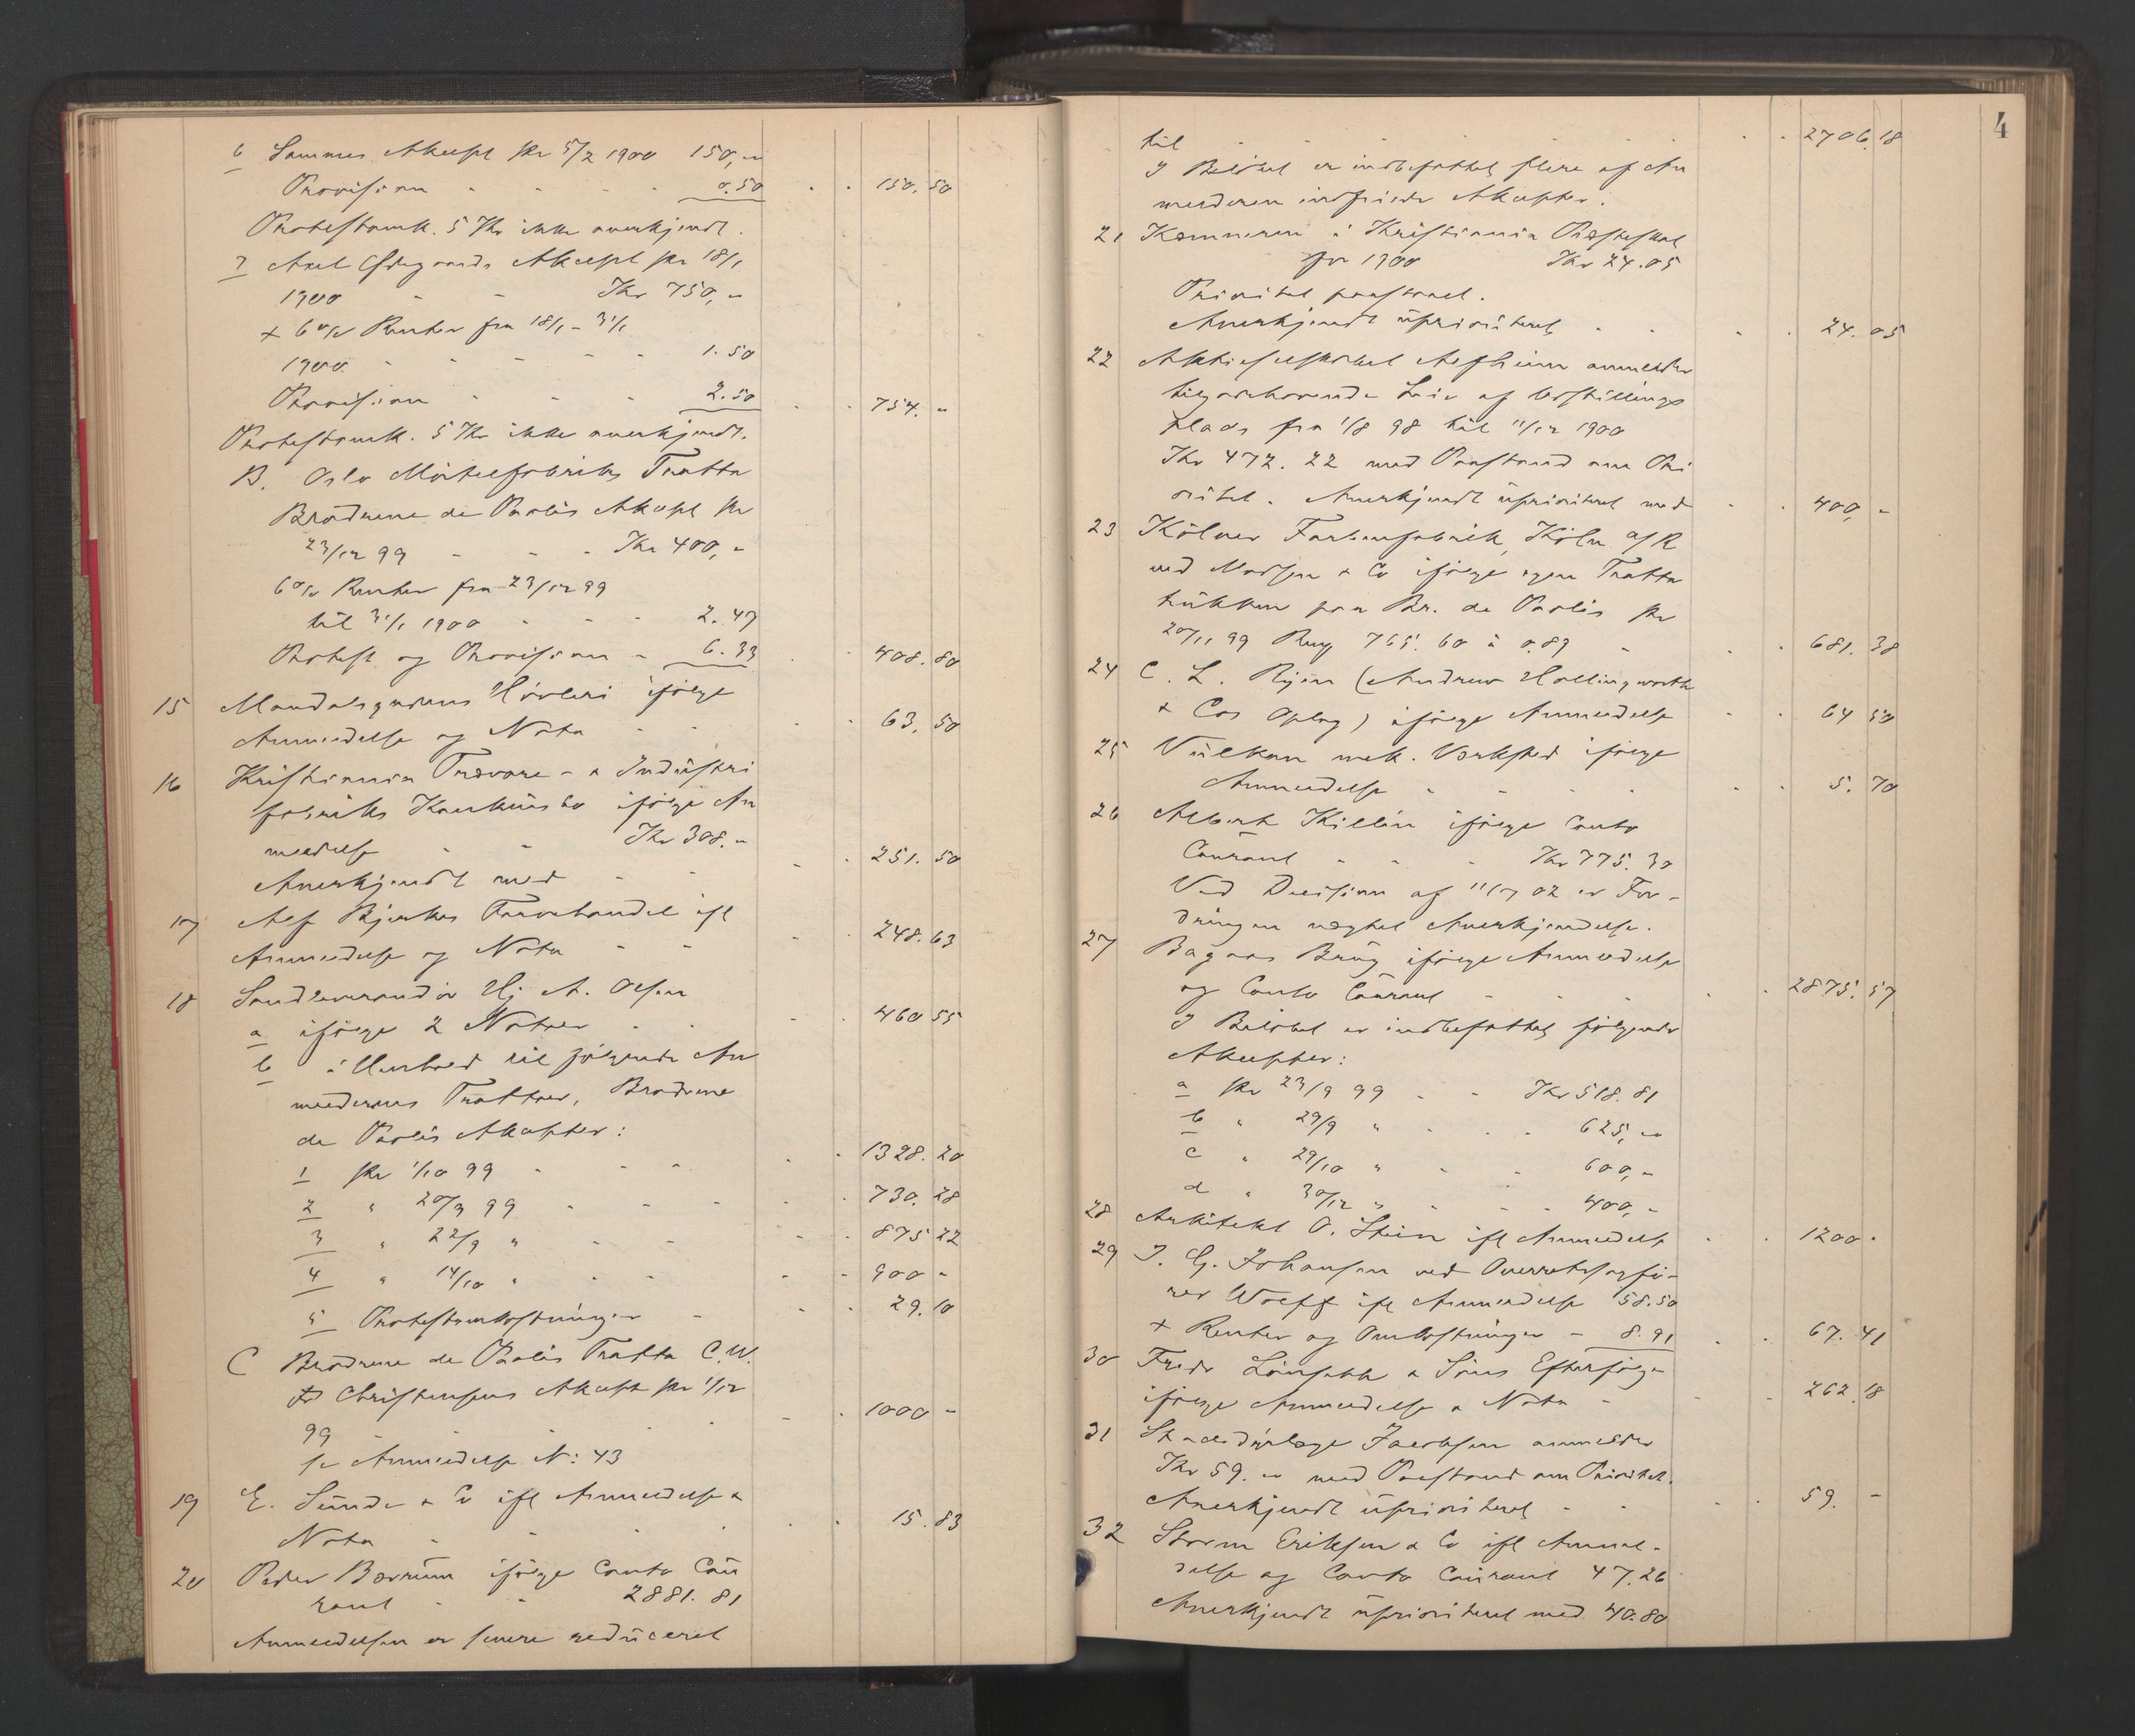 6 Sammes Akcept pr 5/2 1900 150,-
Provision - - - - 0.50 - - 150.50
Protestomk. 5 Kr ikke anerkjendt.
7 Axel Ødegaards Akcept pr 18/1
1900 - - Kr 750,-
+ 6 % Renter fra 18/1 - 31/1
1900 - - - - - 1.50
Provision - - - 2.50 - - 754.-
Protestomk. 5 Kr ikke anerkjendt.
B. Oslo Mörtelfabriks Tratta
Brödrene de Paolis Akcept pr
23/12 99 - - - Kr 400,-
6 % Renter fra 23/12 99
til 31/1 1900 - - - 2.47
Protest og Provision - 6.33 - - 408.80
15 Mandalsgadens Høvleri ifölge
Anmeldelse og Nota - - - - 63.50
16 Kristiania Trævare- & Industri
fabriks Konkursbo ifölge An
meldelse - - Kr 308.-
Anerkjendt med - - - - 251.50
17 Alf Bjerkes Farvehandel ifl
Anmeldelse og Nota - - - - 248.63
18 Sandleverandör Hj. A. Olsen
a ifölge 2 Notaer - - - - 460 55
b i Henhold til fölgende An
melderens Trattaer, Brödrene
de Paolis Akcepter:
1 pr 1/10 99 - - - - - 1328.20
2 " 20/9 99 - - - - - 730.28
3 " 22/9 " - - - - 875 22
4 " 14/10 " - - - - - 900 -
5 Protestomkostninger - - - 29.10
C Brödrene de Paolis Tratta C. W.
Christensens Akcept pr 1/12
99 - - - 1000 -
se Anmeldelse N: 43
19 E. Sunde & Co ifl Anmeldelse &
Nota - - - - - 15.83
20 Peder Bærrum ifölge Conto Cou
rant - - 2881.81
Anmeldelsen er senere reduceret
4
til - - - - 2706.18
I Belöbet er indbefattet flere af An
melderen indfriede Akcepter.
21 Kæmneren i Kristiania Præsteskat
for 1900 Kr 24.05
Prioritet paastaaet.
Anerkjendt uprioriteret - - - - 24.05
22 Aktieselskabet anmelder
tilgodehavende Leie af Opstillings
plads fra 1/8 98 til 11/12 1900
Kr 472.22 med Paastand om Pri
oritet. Anerkjendt uprioriteret med - - 400,-
23 Kölner Farbenfabrik, Köln a/R
ved Madsen & Co ifölge egen Tratta
trukken paa Br. de Paolis pr
20/11 99 765.60 à 0.89 - - - 681.38
24 C. L. Rijen (Andrew Hollingworth
& Cos Oplag) ifölge Anmeldelse - - 64 50
25 Vulkan mek. Værksted ifölge
Anmeldelse - - - - - - 5.70
26 Albert Killén ifölge Conto
Courant - - - Kr 775.30
Ved Decision af 11/7 02 er For-
dringen nægtet Anerkjendelse.
27 Bagaas Brug ifölge Anmeldelse
og Conto Courant - - - - - 2875.57
I Belöbet er indbefattet fölgende
Akcepter:
a pr 23/9 99 - - Kr 518.81
b " 29/9 " - - - 625,-
c " 29/10 " - - 600,-
d " 30/12 " - - - 400,-
28 Arkitekt O. Stein ifl Anmeldelse - - 1200 -
29 J. G. Johansen ved Overretssagfö-
rer Wolff ifl Anmeldelse 58.50
+ Renter og Omkostninger - 8.91 - - 67.41
30 Fredr Lönsebk & Söns Efterfölger
ifölge Anmeldelse & Nota - - - 262.18
31 Stadsdyrlæge Jacobsen anmelder
Kr 59.- med Paastand om Prioritet.
Anerkjendt uprioriteret - - - - 59.-
32 Storm Eriksen & Co ifl Anmel-
delse og Conto Courant 47.26
Anerkjendt uprioriteret med 40.80